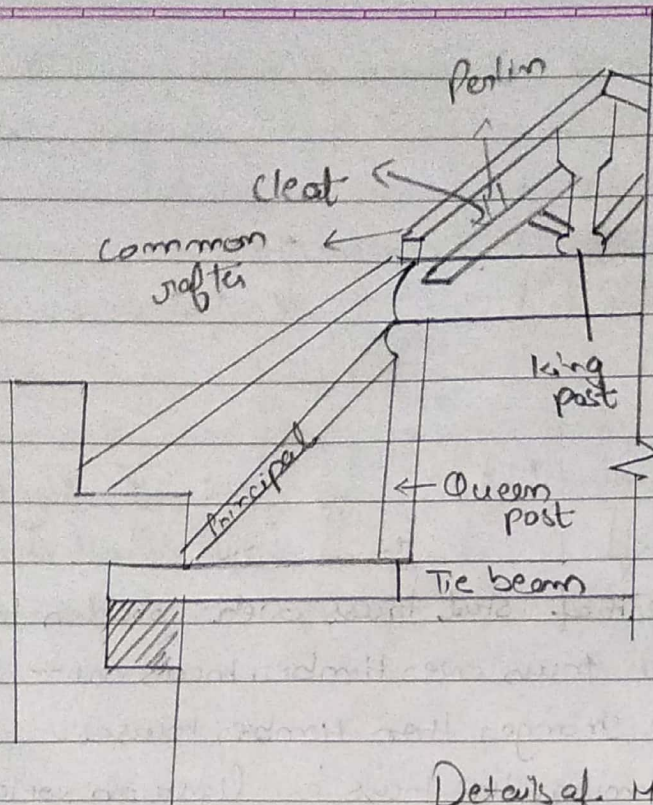 Perlin
cleat
common
rafter
king
post
Principal
Queen
post
Tie beam
Details of. M